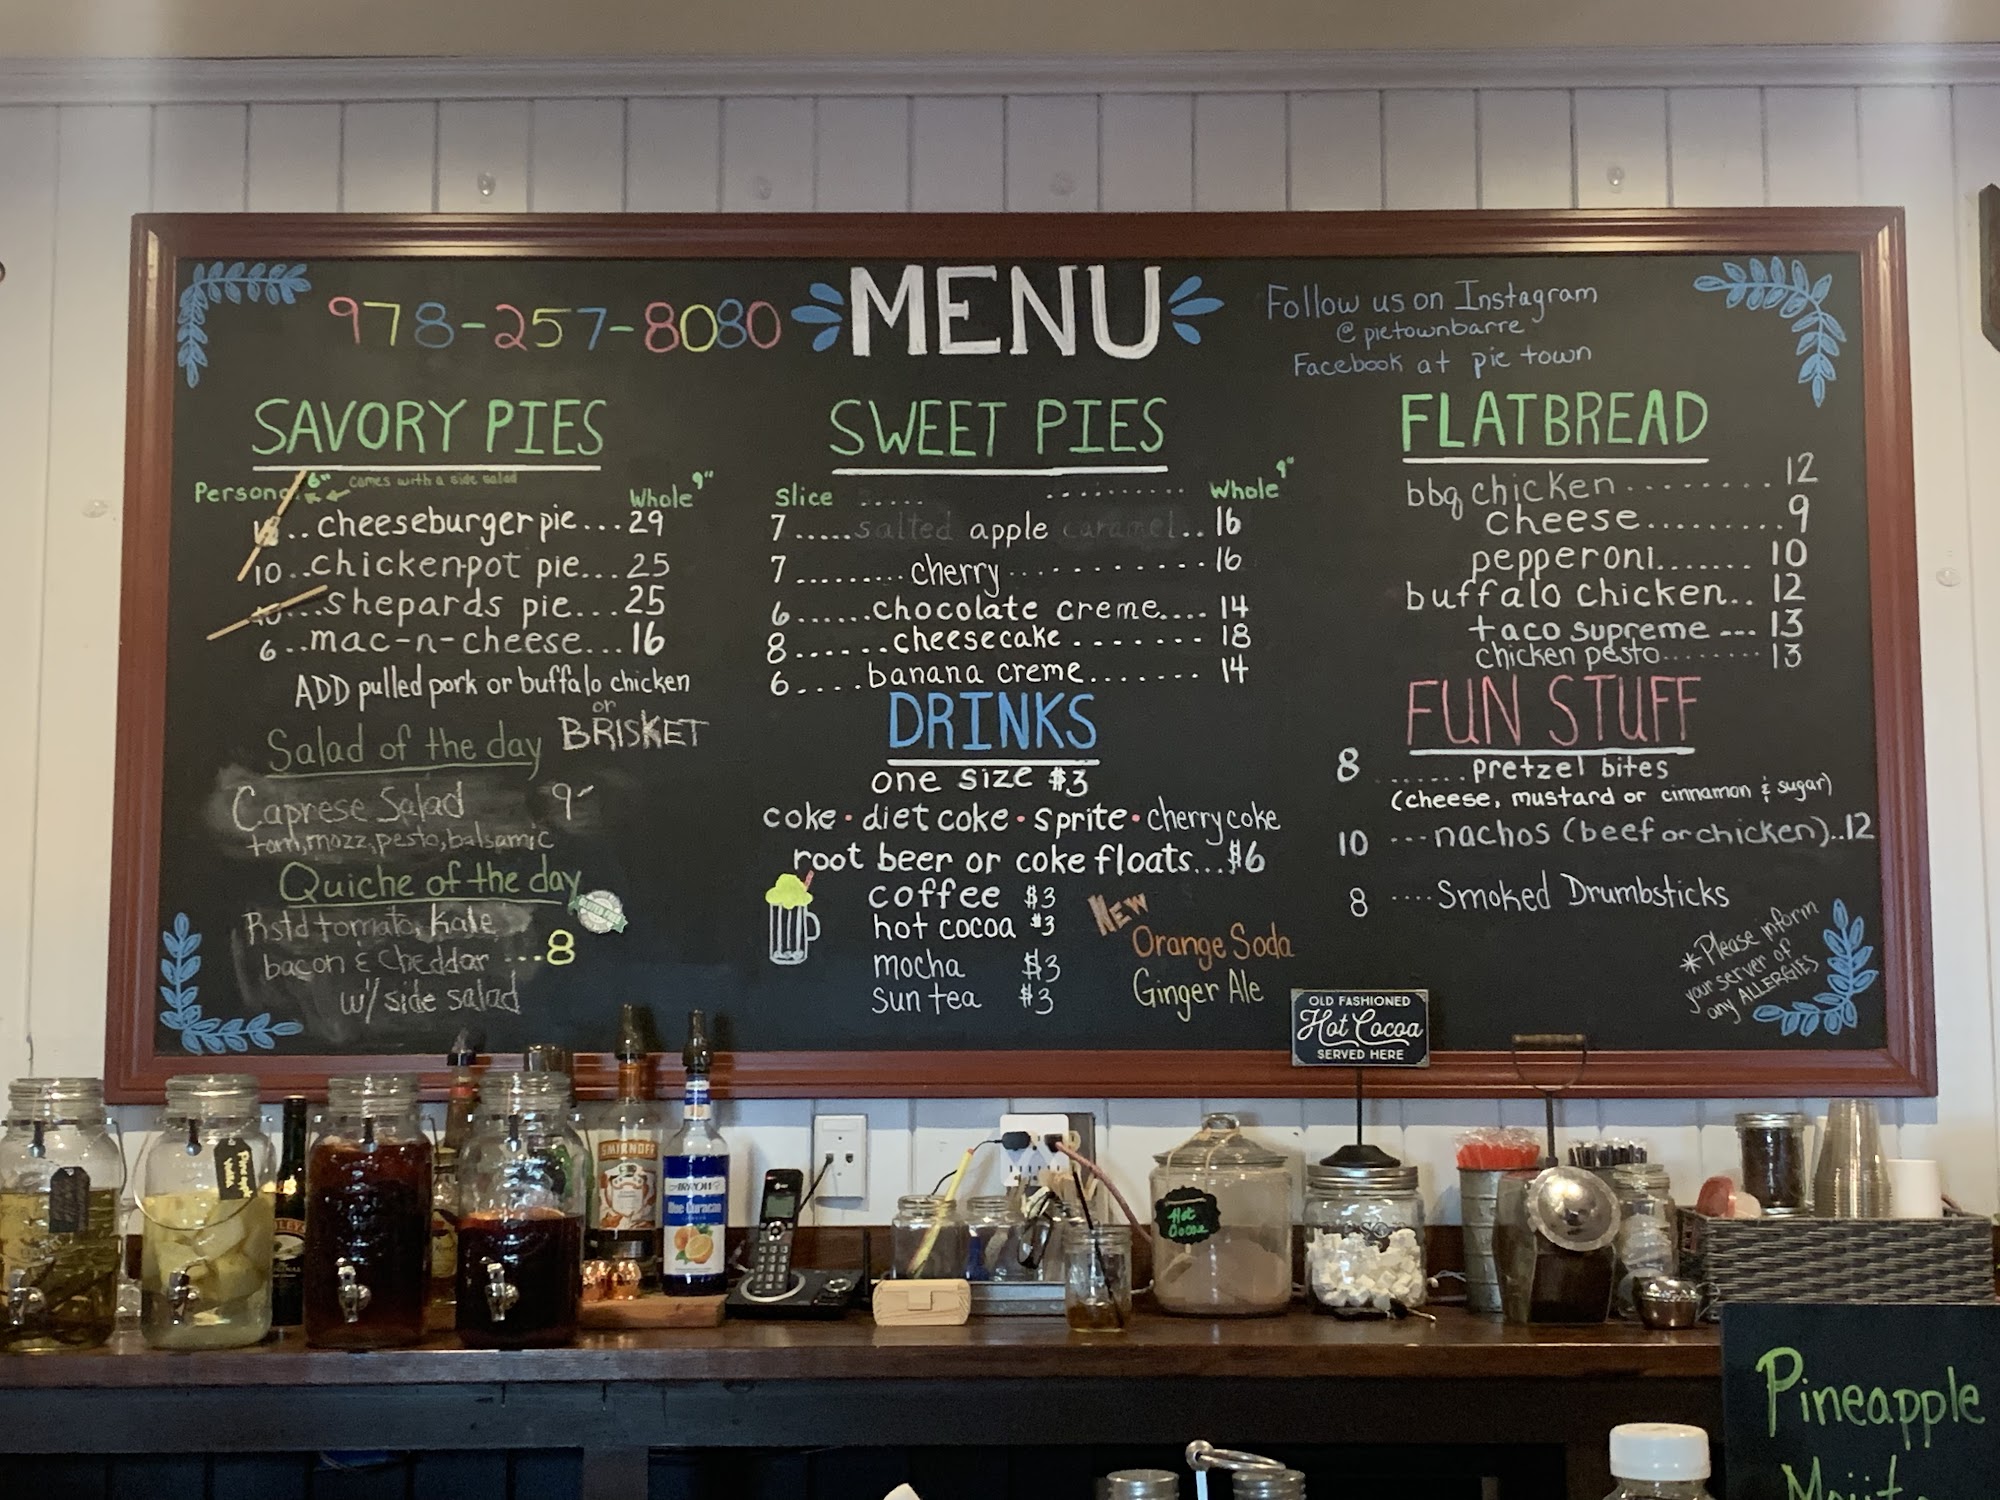 978-257-8080
MENU
Follow us on Instagram
@pietownbarre
Facebook at pie town
SAVORY PIES
6" comes with a side salad
Personal Whole 9"
..cheeseburger pie...29
10..chicken pot pie...25
10...shepards pie...25
6..mac-n-cheese...16
ADD pulled pork or buffalo chicken
or
BRISKET
Salad of the day
Caprese Salad 9-
tom, mozz, pesto, balsamic
Quiche of the day
GLUTEN FREE
Rstd tomato, kale
bacon & cheddar ...8
w/ side salad
SWEET PIES
Slice Whole 9"
7.....salted apple caramel..16
7.........cherry...........16
6......chocolate creme....14
8......cheesecake.......18
6....banana creme.......14
DRINKS
one size $3
coke • diet coke • sprite • cherry coke
root beer or coke floats...$6
coffee $3
hot cocoa $3
mocha $3
sun tea $3
NEW
Orange Soda
Ginger Ale
FLATBREAD
bbq chicken........12
cheese.........9
pepperoni.......10
buffalo chicken..12
taco supreme---13
chicken pesto........13
FUN STUFF
8.......pretzel bites
(cheese, mustard or cinnamon & sugar)
10 ...nachos (beef or chicken)..12
8 ....Smoked Drumbsticks
*Please inform
your server of
any ALLERGIES
OLD FASHIONED
Hot Cocoa
SERVED HERE
SMIRNOFF
Blue Curacao
Hot
Cocoa
Pineapple
Mojito